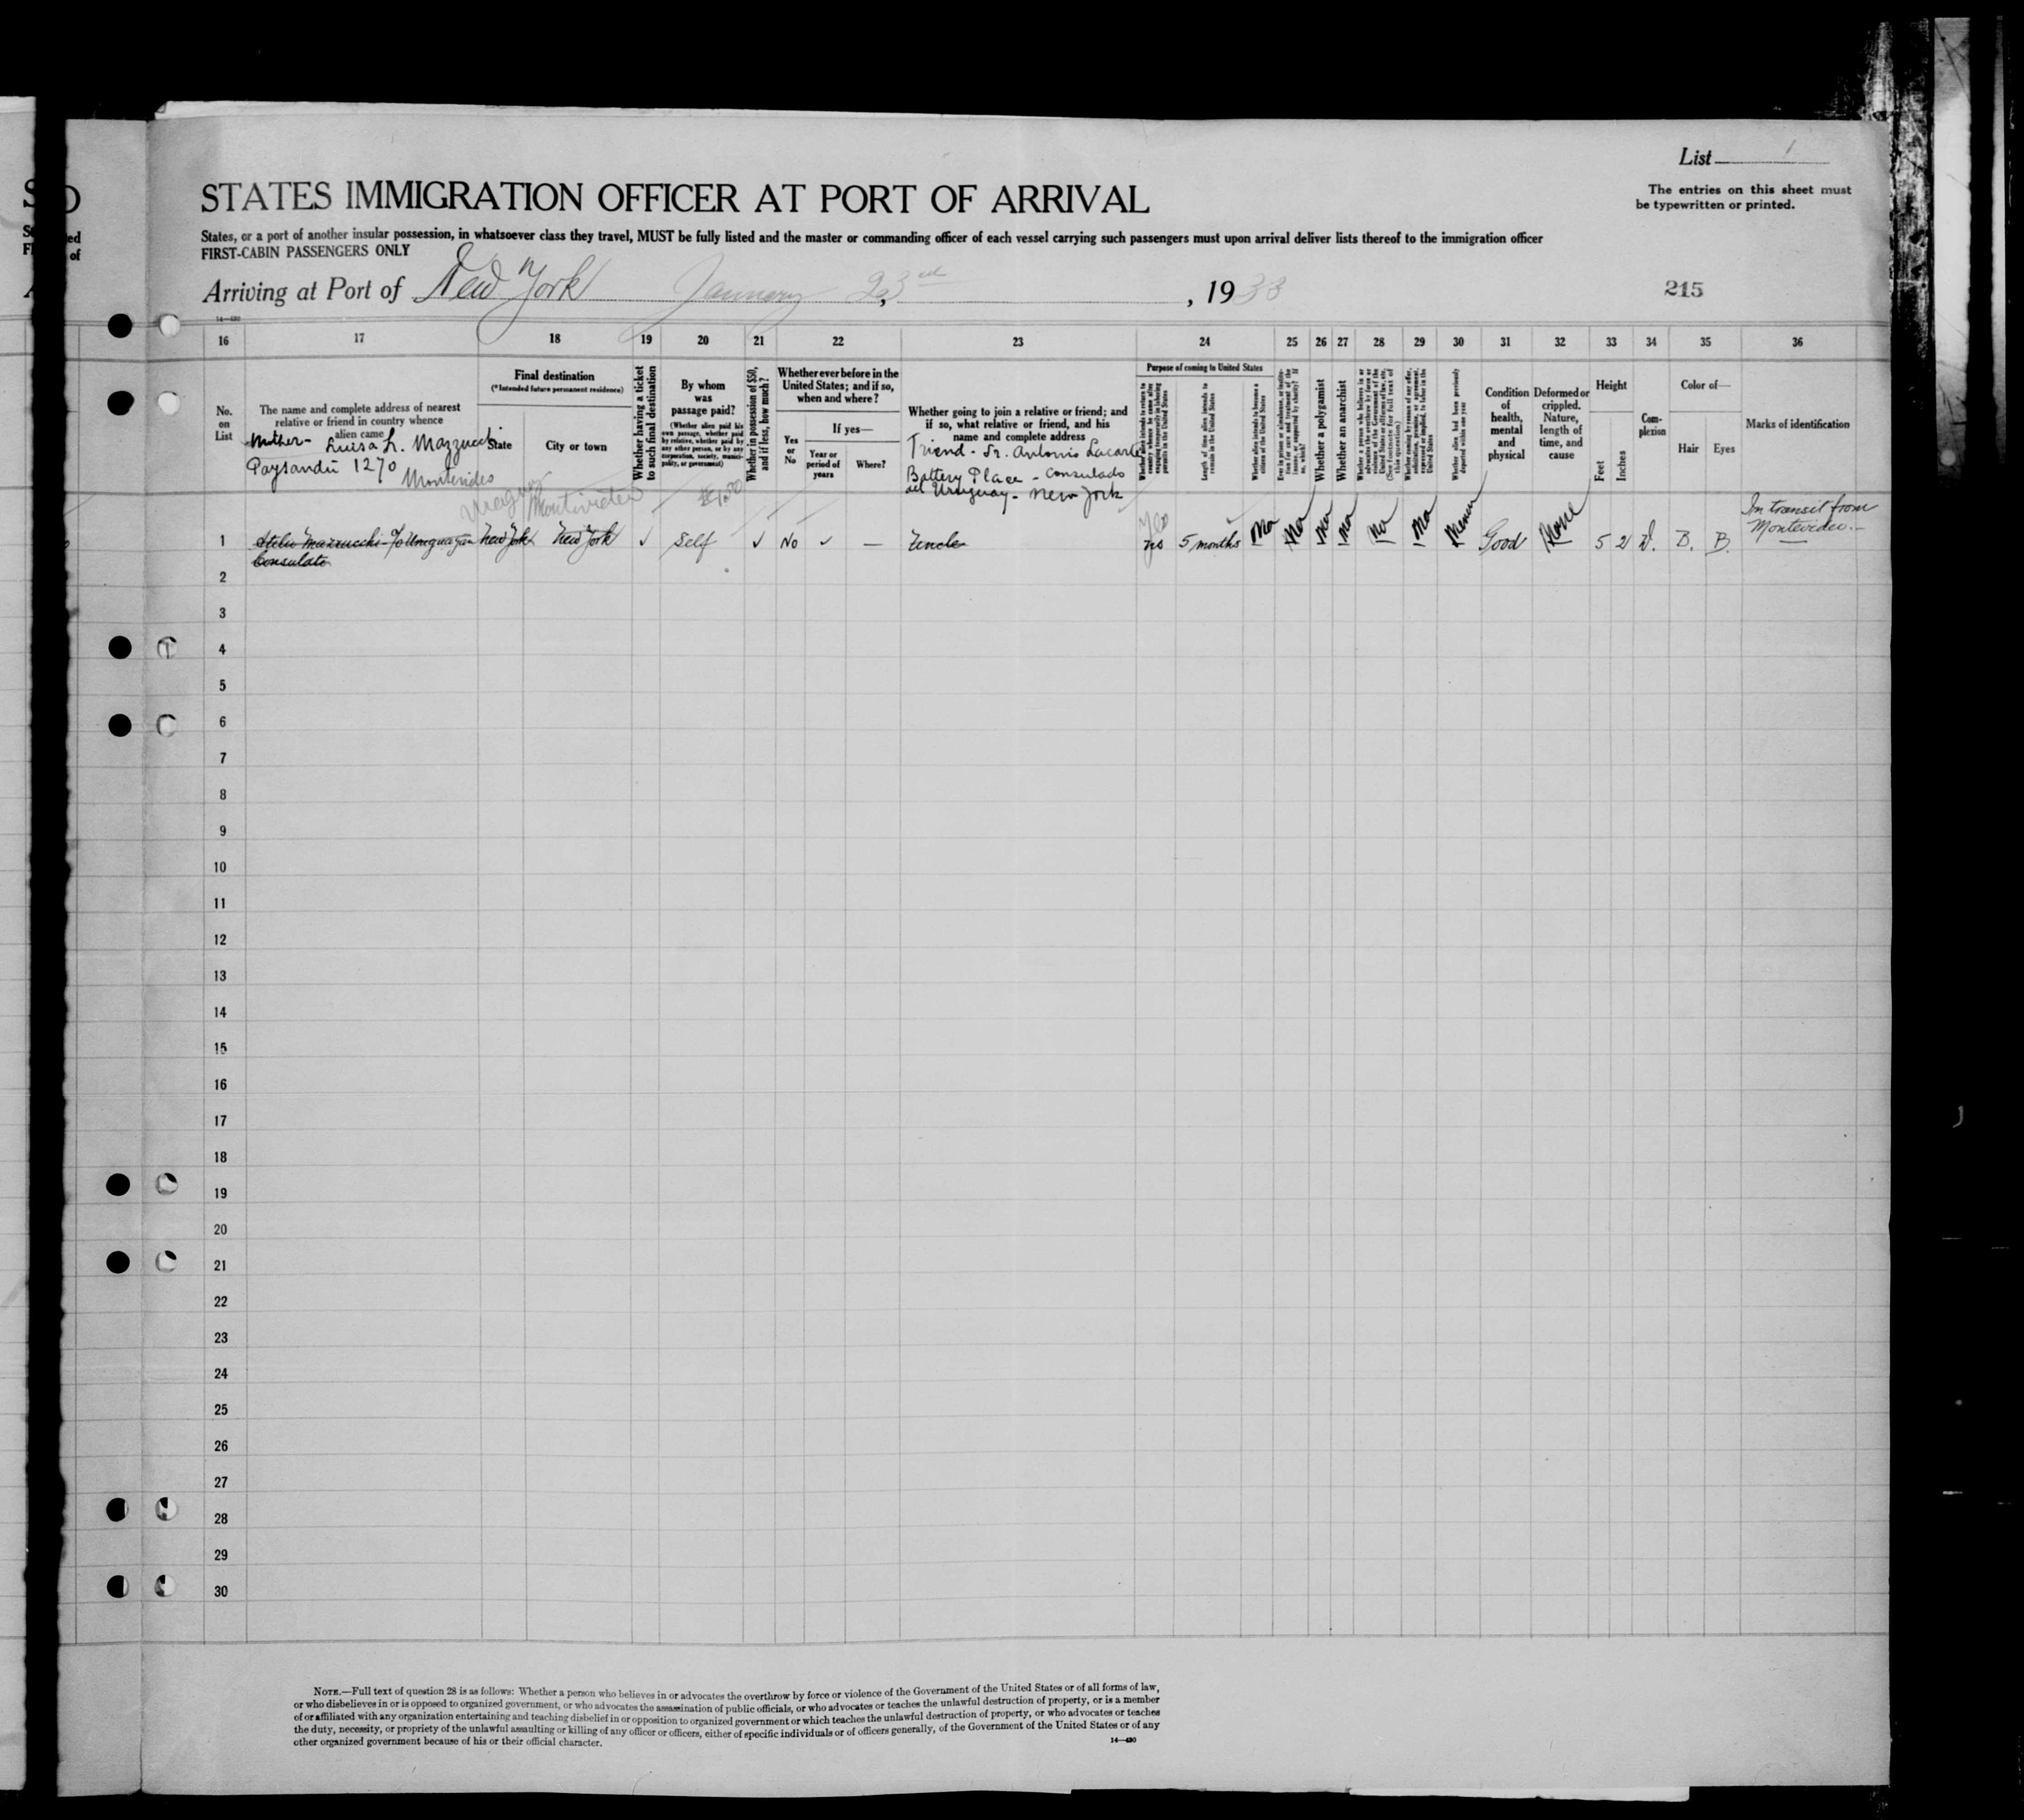 List 1
The entries on this sheet must
be typewritten or printed.
STATES IMMIGRATION OFFICER AT PORT OF ARRIVAL
States, or a port of another insular possession, in whatsoever class they travel, MUST be fully listed and the master or commanding officer of each vessel carrying such passengers must upon arrival deliver lists thereof to the immigration officer
FIRST-CABIN PASSENGERS ONLY
Arriving at Port of New York January 23rd, 1933
215
14—430
16 17 18 19 20 21 22 23 24 25 26 27 28 29 30 31 32 33 34 35 36
No.
on
List
The name and complete address of nearest
relative or friend in country whence
alien came
Mother - Luisa L. Mazzucchi
Paysandú 1270 Montevideo
Final destination
(*Intended future permanent residence)
State
City or town
Whether having a ticket
to such final destination
By whom
was
passage paid?
(Whether alien paid his
own passage, whether paid
by relative, whether paid by
any other person, or by any
corporation, society, munici-
pality, or government)
Whether in possession of $50,
and if less, how much?
Whether ever before in the
United States; and if so,
when and where?
Yes
or
No
If yes—
Year or
period of
years
Where?
Whether going to join a relative or friend; and
if so, what relative or friend, and his
name and complete address
Friend - Sr. Antonio Lacarte
Battery Place - Consulado
del Uruguay - New York
Purpose of coming to United States
Whether alien intends to return to
country whence he came after
engaging temporarily in laboring
pursuits in the United States
Length of time alien intends to
remain in the United States
Whether alien intends to become a
citizen of the United States
Ever in prison or almshouse, or institu-
tion for care and treatment of the
insane, or supported by charity? If
so, which?
Whether a polygamist
Whether an anarchist
Whether a person who believes in or
advocates the overthrow by force or
violence of the Government of the
United States or all forms of law, etc.
(See footnote for full text of
this question)
Whether coming by reason of any offer,
solicitation, promise, or agreement,
expressed or implied, to labor in the
United States
Whether alien had been previously
deported within one year
Condition
of
health,
mental
and
physical
Deformed or
crippled.
Nature,
length of
time, and
cause
Height
Feet
Inches
Com-
plexion
Color of—
Hair
Eyes
Marks of identification
Uruguay Montevideo
Yes
In transit from
Montevideo.-
1 Atelio Mazzucchi - c/o Uruguayan New York New York ✓ Self ✓ No ✓ — Uncle no 5 months No No No No No No Never Good None 5 2 D. B. B.
Consulate
2
3
4
5
6
7
8
9
10
11
12
13
14
15
16
17
18
19
20
21
22
23
24
25
26
27
28
29
30
NOTE.—Full text of question 28 is as follows: Whether a person who believes in or advocates the overthrow by force or violence of the Government of the United States or of all forms of law,
or who disbelieves in or is opposed to organized government, or who advocates the assassination of public officials, or who advocates or teaches the unlawful destruction of property, or is a member
of or affiliated with any organization entertaining and teaching disbelief in or opposition to organized government or which teaches the unlawful destruction of property, or who advocates or teaches
the duty, necessity, or propriety of the unlawful assaulting or killing of any officer or officers, either of specific individuals or of officers generally, of the Government of the United States or of any
other organized government because of his or their official character.
14—430